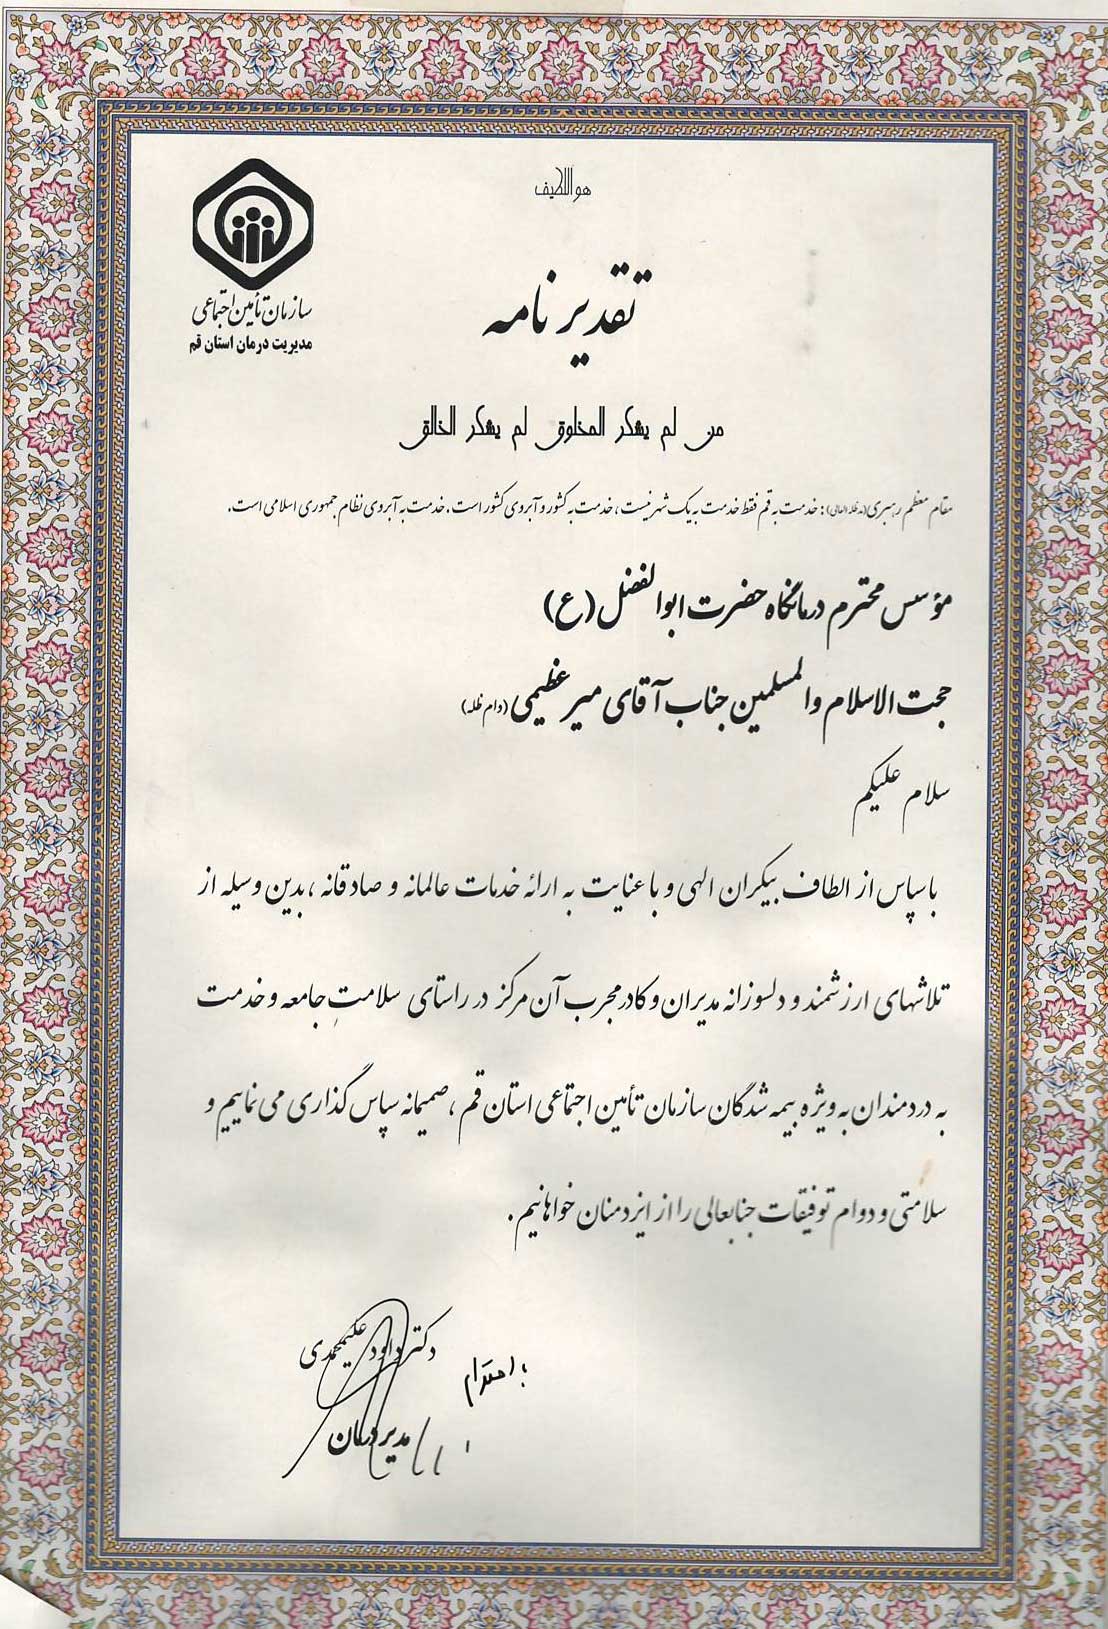 هو اللطیف
سازمان تأمین اجتماعی
مدیریت درمان استان قم
تقدیر نامه
من لم یشکر المخلوق لم یشکر الخالق
مقام معظم رهبری(مدظله العالی): خدمت به قم فقط خدمت به یک شهر نیست، خدمت به کشور و آبروی کشور است. خدمت به آبروی نظام جمهوری اسلامی است.
مؤسس محترم درمانگاه حضرت ابوالفضل (ع)
حجت الاسلام والمسلمین جناب آقای میر عظیمی (دام ظله)
سلام علیکم
با سپاس از الطاف بیکران الهی و با عنایت به ارائه خدمات عالمانه و صادقانه، بدین وسیله از
تلاشهای ارزشمند و دلسوزانه مدیران و کادر مجرب آن مرکز در راستای سلامتِ جامعه و خدمت
به دردمندان به ویژه بیمه شدگان سازمان تأمین اجتماعی استان قم، صمیمانه سپاس گذاری می نماییم و
سلامتی و دوام توفیقات جنابعالی را از ایزدمنان خواهانیم.
با احترام
دکتر داود علیمحمدی
مدیر درمان